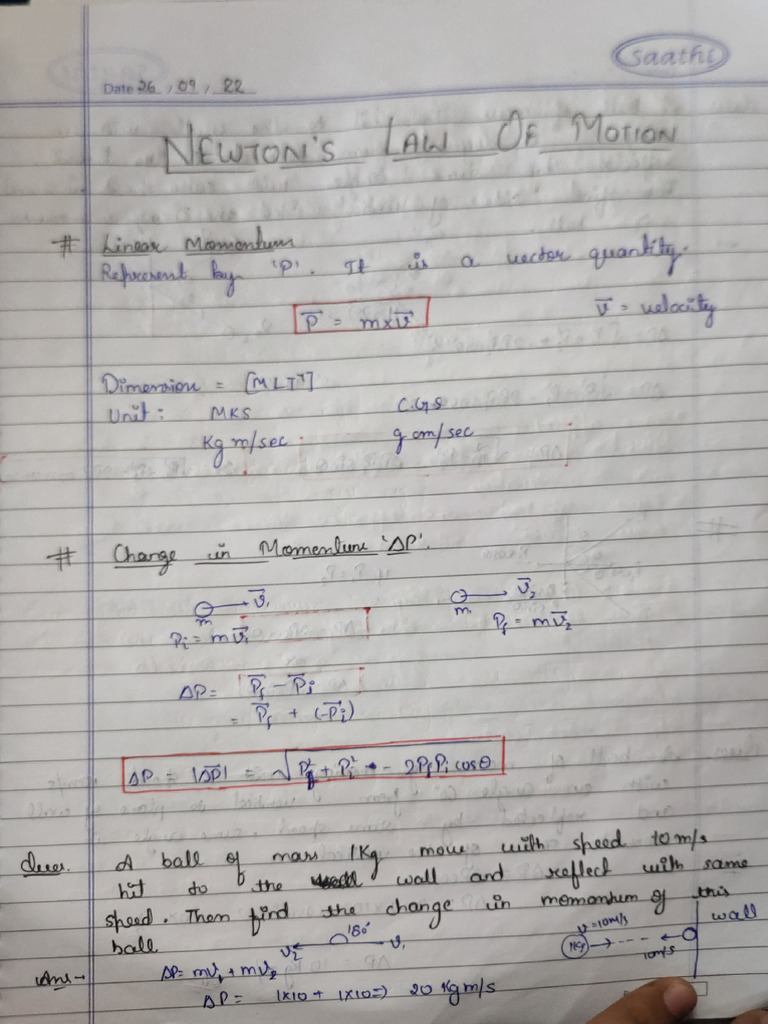 saathi
Date 26 , 09 , 22
NEWTON'S LAW OF MOTION
# Linear Momentum
Represent by 'P'. It is a vector quantity.
P⃗ = m×v⃗ v⃗ = velocity
Dimension = [MLT⁻¹]
Unit : MKS C.G.S
Kg m/sec g cm/sec
# Change in Momentum 'ΔP'.
v⃗₁ v⃗₂
m m
Pi = mv⃗₁ Pf = mv⃗₂
ΔP = P⃗f − P⃗i
= P⃗f + (−P⃗i)
ΔP = |ΔP⃗| = √Pf² + Pi² - 2PfPi cosθ
Ques. A ball of mass 1Kg move with speed 10 m/s
hit to the wall and reflect with same
speed. Then find the change in momentum of this
ball
180° v₂ v₁ v=10m/s wall
1Kg 10m/s
Ans→ ΔP= mv₁ + mv₂
ΔP = 1×10 + 1×10 => 20 Kg m/s